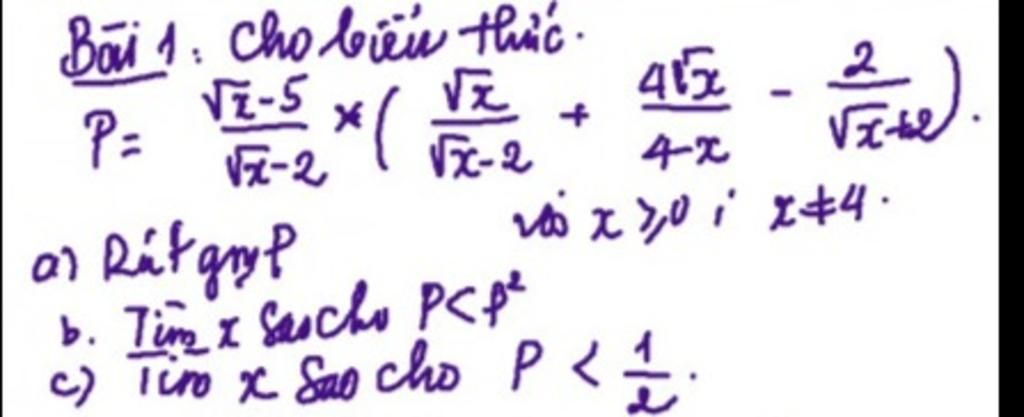 Bài 1. Cho biểu thức.
P = (√x-5)/(√x-2) × ( √x/(√x-2) + 4√x/(4-x) - 2/(√x+2) ).
với x ≥ 0 ; x ≠ 4.
a) Rút gọn P
b. Tìm x sao cho P < P²
c) Tìm x sao cho P < 1/2.